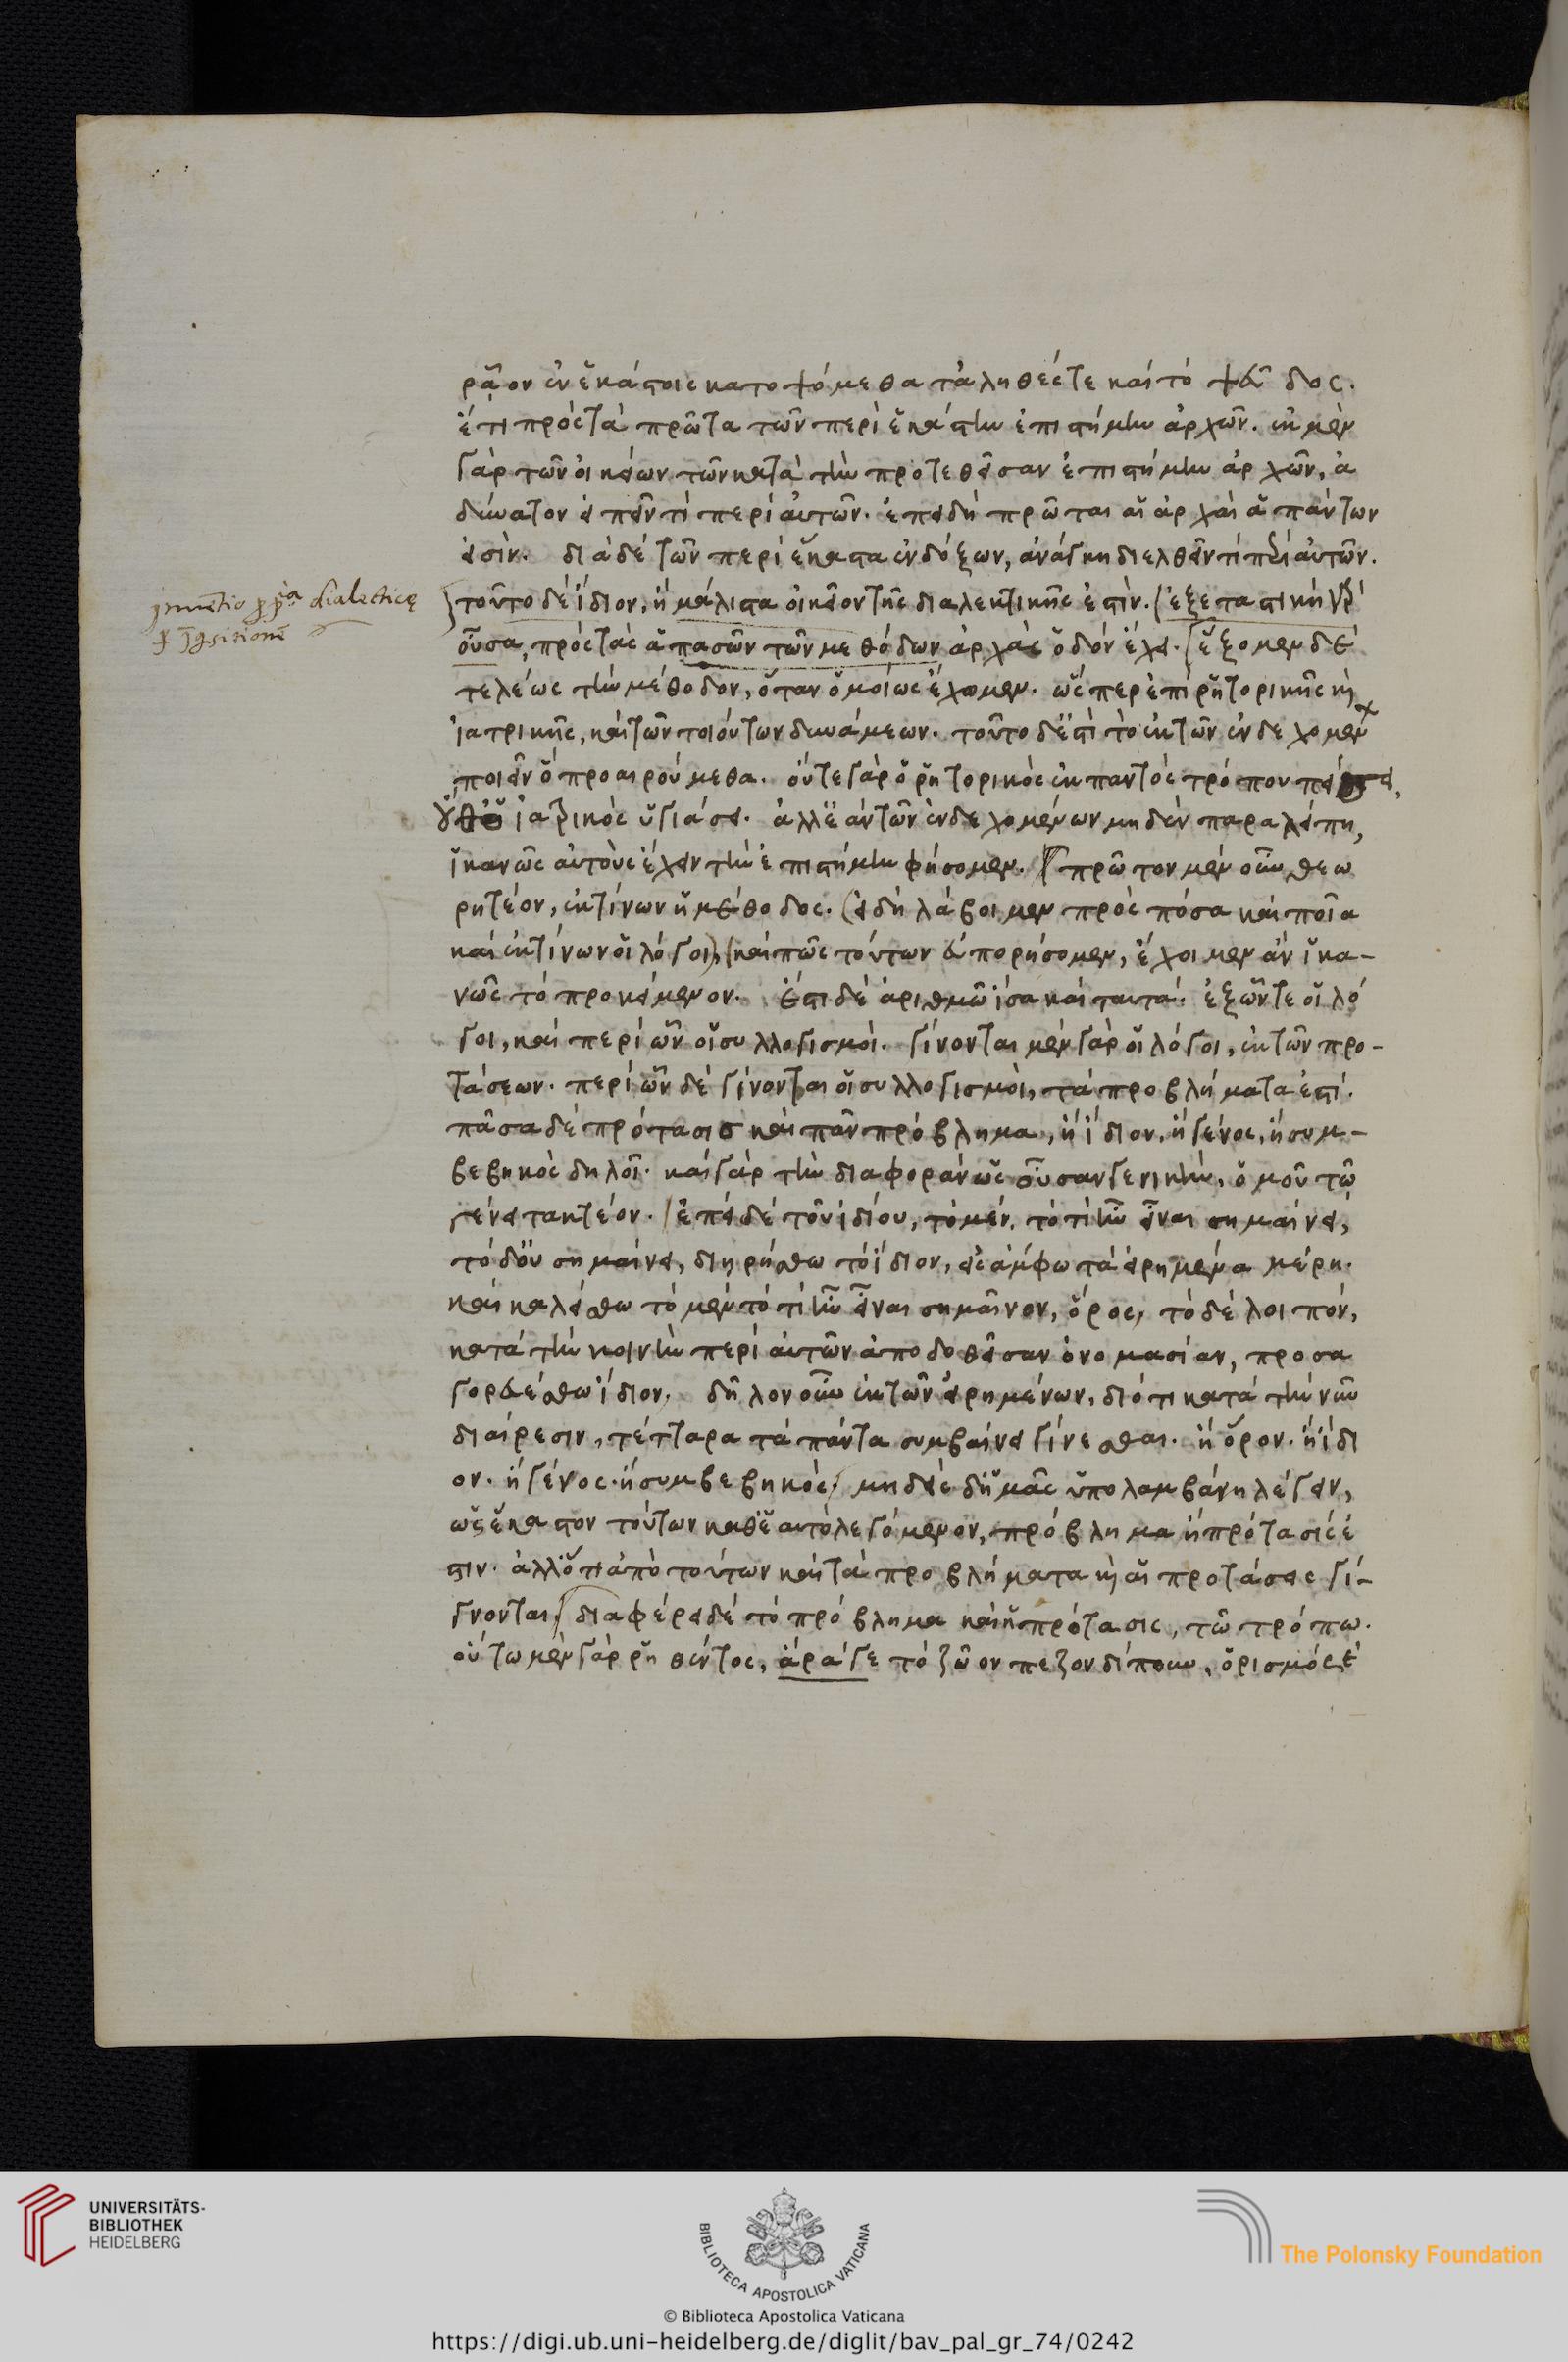 ρᾷον ἐν ἑκάστοις κατοψόμεθα τἀληθές τε καὶ τὸ ψεῦδος.
ἔτι πρὸς τὰ πρῶτα τῶν περὶ ἑκάστην ἐπιστήμην ἀρχῶν. ἐκ μὲν
γὰρ τῶν οἰκείων τῶν κατὰ τὴν προτεθεῖσαν ἐπιστήμην ἀρχῶν, ἀ
δύνατον εἰπεῖν τι περὶ αὐτῶν. ἐπειδὴ πρῶται αἱ ἀρχαὶ ἁπάντων
εἰσίν. διὰ δὲ τῶν περὶ ἕκαστα ἐνδόξων, ἀνάγκη διελθεῖν τι περὶ αὐτῶν.
τοῦτο δὲ ἴδιον, ἢ μάλιστα οἰκεῖον τῆς διαλεκτικῆς ἐστιν. ἐξεταστικὴ γὰρ
οὖσα, πρὸς τὰς ἁπασῶν τῶν μεθόδων ἀρχὰς ὁδὸν ἔχει. ἕξομεν δὲ
τελέως τὴν μέθοδον, ὅταν ὁμοίως ἔχωμεν. ὥσπερ ἐπὶ ῥητορικῆς καὶ
ἰατρικῆς, καὶ τῶν τοιούτων δυνάμεων. τοῦτο δ' ἐστὶ τὸ ἐκ τῶν ἐνδεχομένων
ποιεῖν ἃ προαιρούμεθα. οὔτε γὰρ ὁ ῥητορικὸς ἐκ παντὸς τρόπου πείσει,
οὔθ' ὁ ἰατρικὸς ὑγιάσει. ἀλλ' ἐὰν τῶν ἐνδεχομένων μηδὲν παραλείπῃ,
ἱκανῶς αὐτὸν ἔχειν τὴν ἐπιστήμην φήσομεν. πρῶτον μὲν οὖν θεω
ρητέον, ἐκ τίνων ἡ μέθοδος. εἰ δὴ λάβοιμεν πρὸς πόσα καὶ ποῖα
καὶ ἐκ τίνων οἱ λόγοι, καὶ πῶς τούτων εὐπορήσομεν, ἔχοιμεν ἂν ἱκα-
νῶς τὸ προκείμενον. ἔστι δὲ ἀριθμῷ ἴσα καὶ ταυτά. ἐξ ὧν τε οἱ λό
γοι, καὶ περὶ ὧν οἱ συλλογισμοί. γίνονται μὲν γὰρ οἱ λόγοι, ἐκ τῶν προ-
τάσεων. περὶ ὧν δὲ γίνονται οἱ συλλογισμοὶ, τὰ προβλήματά ἐστι.
πᾶσα δὲ πρότασις καὶ πᾶν πρόβλημα, ἢ ἴδιον, ἢ γένος, ἢ συμ-
βεβηκὸς δηλοῖ. καὶ γὰρ τὴν διαφορὰν ὡς οὖσαν γενικὴν, ὁμοῦ τῷ
γένει τακτέον. ἐπεὶ δὲ τοῦ ἰδίου, τὸ μὲν, τὸ τί ἦν εἶναι σημαίνει,
τὸ δ' οὐ σημαίνει, διῃρήσθω τὸ ἴδιον, εἰς ἄμφω τὰ εἰρημένα μέρη.
καὶ καλείσθω τὸ μὲν τὸ τί ἦν εἶναι σημαῖνον, ὅρος, τὸ δὲ λοιπόν,
κατὰ τὴν κοινὴν περὶ αὐτῶν ἀποδοθεῖσαν ὀνομασίαν, προσα
γορευέσθω ἴδιον. δῆλον οὖν ἐκ τῶν εἰρημένων, διότι κατὰ τὴν νῦν
διαίρεσιν, τέτταρα τὰ πάντα συμβαίνει γίνεσθαι. ἢ ὅρον. ἢ ἴδι
ον. ἢ γένος. ἢ συμβεβηκός. μηδεὶς δ' ἡμᾶς ὑπολαμβάνῃ λέγειν,
ὡς ἕκαστον τούτων καθ' αὑτὸ λεγόμενον, πρόβλημα ἢ πρότασίς ἐ
στιν. ἀλλ' ὅτι ἀπὸ τούτων καὶ τὰ προβλήματα καὶ αἱ προτάσεις γί-
γνονται. διαφέρει δὲ τὸ πρόβλημα καὶ ἡ πρότασις, τῷ τρόπῳ.
οὕτω μὲν γὰρ ῥηθέντος, ἆρά γε τὸ ζῷον πεζὸν δίπουν, ὁρισμός ἐ
inuentio dialecticę
UNIVERSITÄTS-
BIBLIOTHEK
HEIDELBERG
BIBLIOTECA APOSTOLICA VATICANA
The Polonsky Foundation
© Biblioteca Apostolica Vaticana
https://digi.ub.uni-heidelberg.de/diglit/bav_pal_gr_74/0242